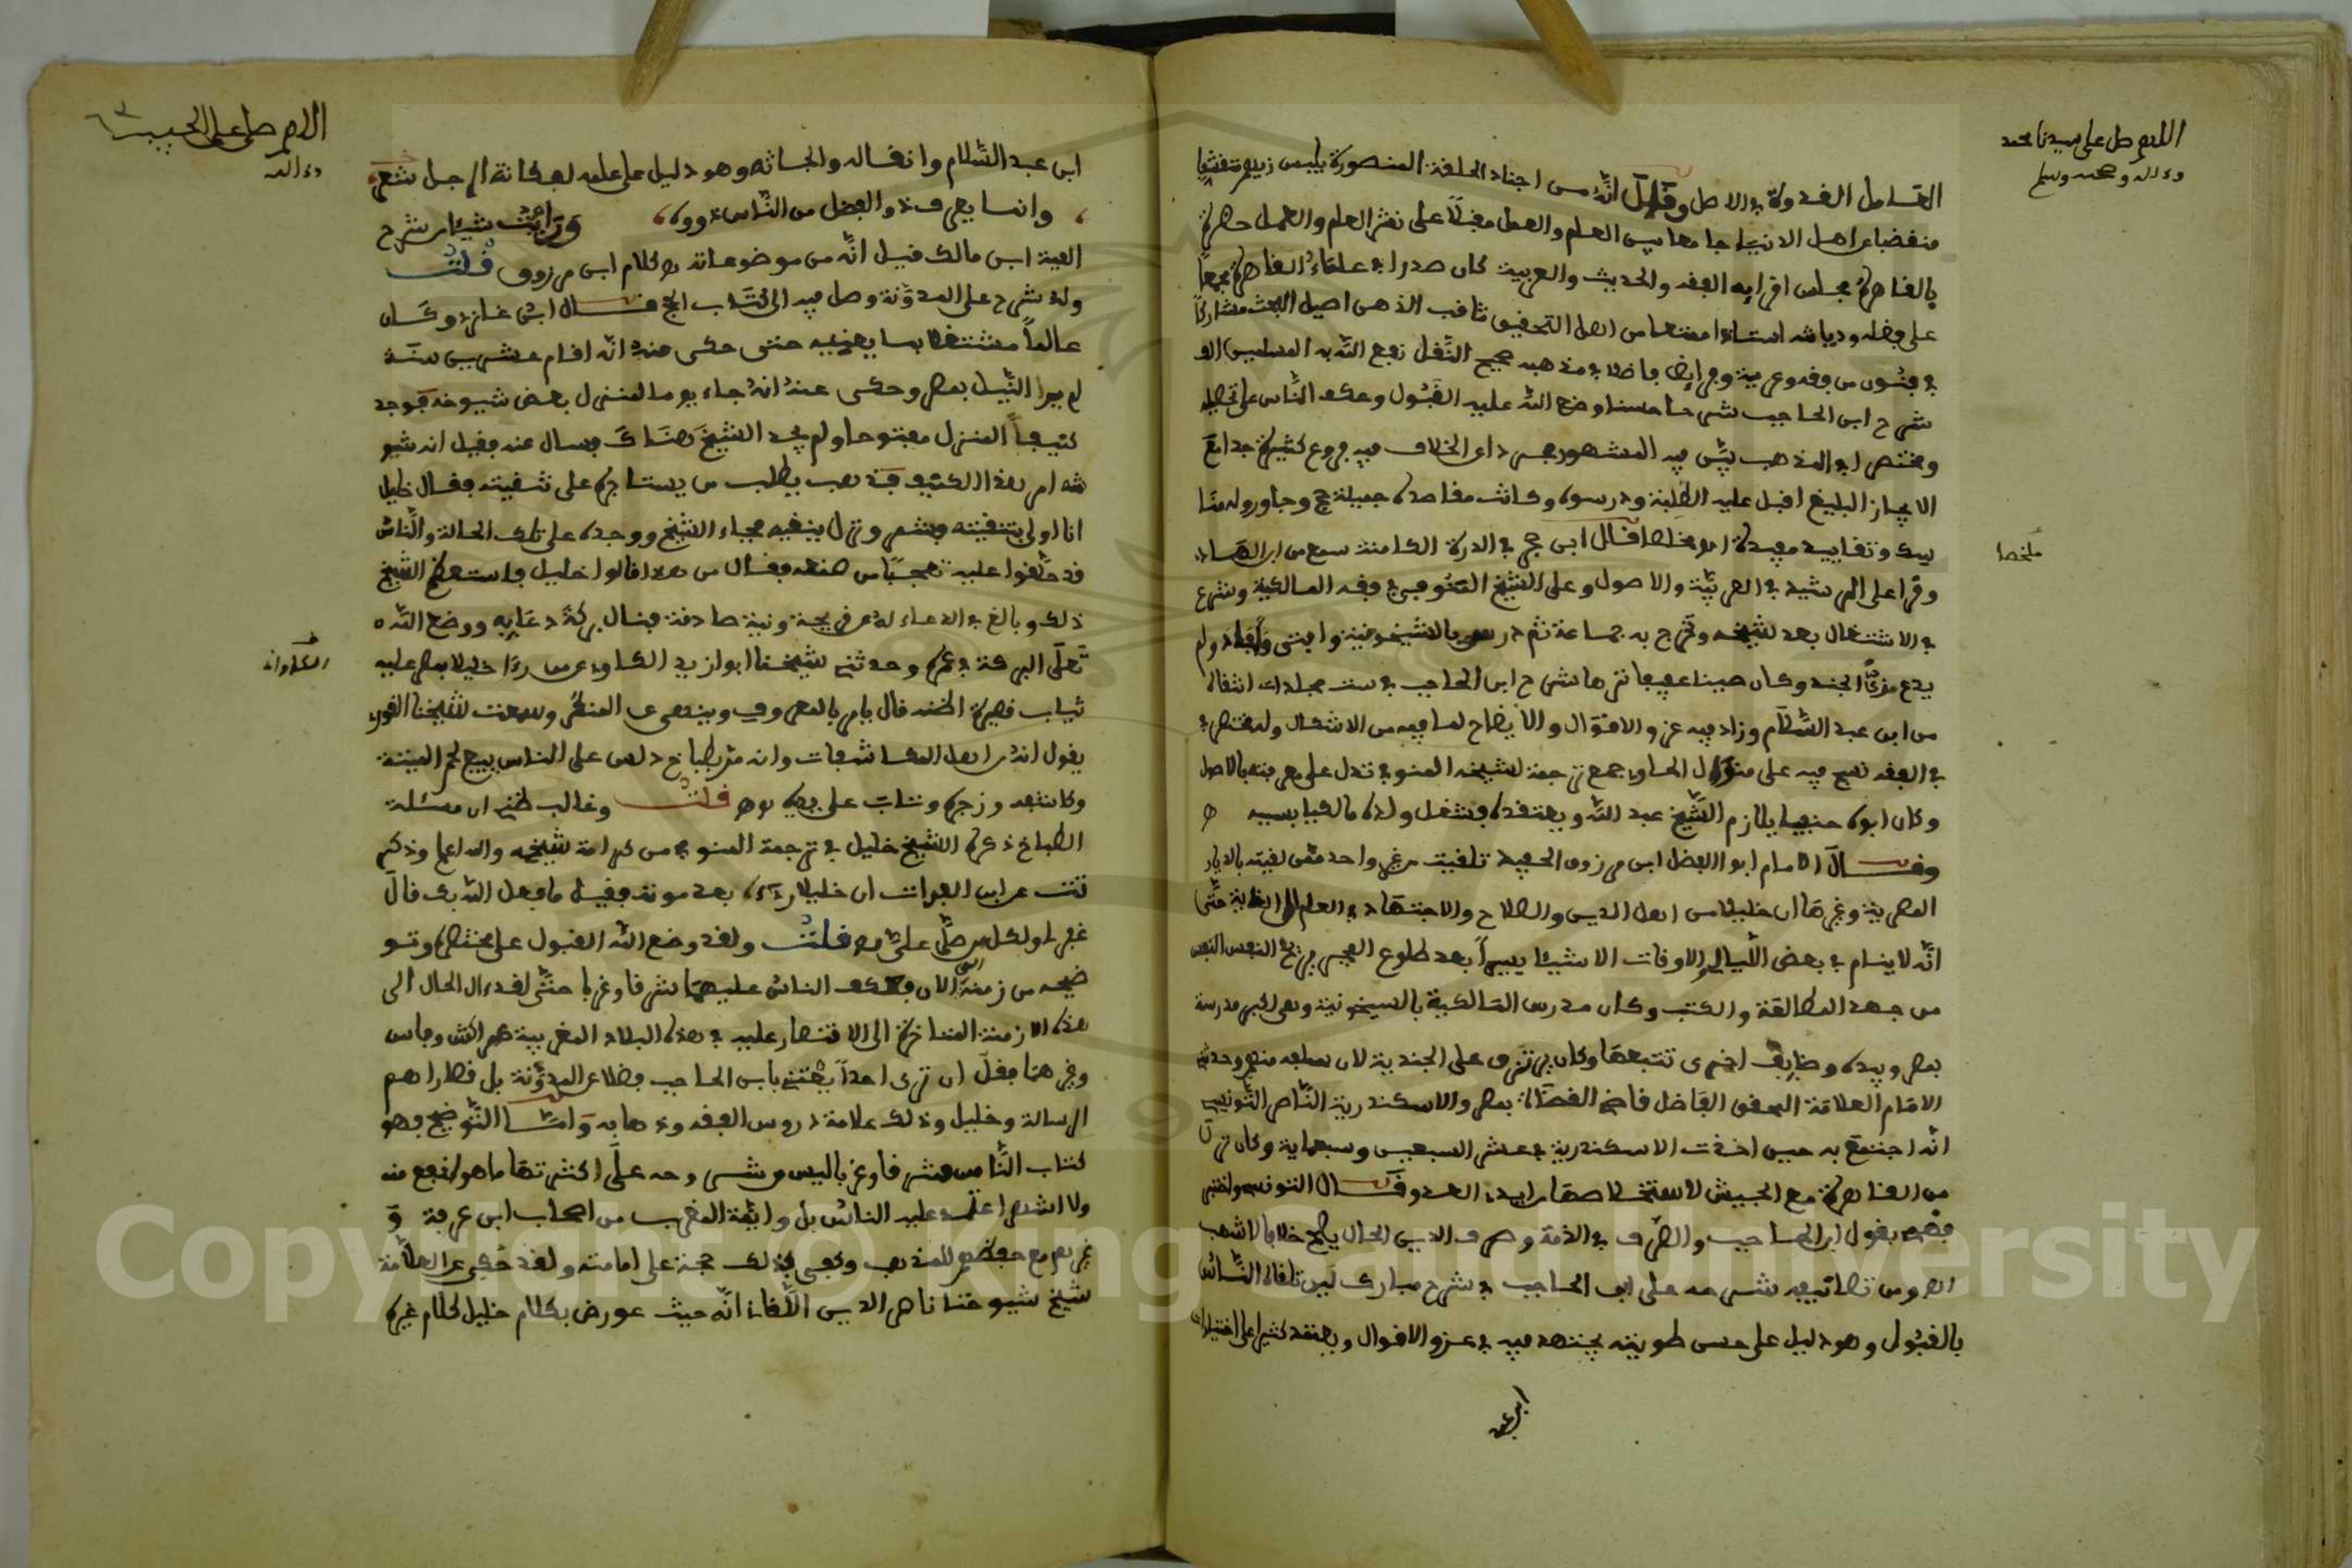 اللهم صل على سيدنا محمد
وءاله وصحبه وسلم
العامل القدوة في الاصل وقال انه من اجناد الحلقة المنصورة يلبس زيهم متقشفا
منقبضا عن اهل الدنيا جامعا بين العلم والعمل مقبلا على نشر العلم والعمل حضرت
بالقاهرة مجلس اقرايه الفقه والحديث والعربية كان صدرا في علماء القاهرة مجمعا
على فضله وديانته استاذا ممتعا من اهل التحقيق ثاقب الذهن اصيل البحث مشاركا
في فنون من فقه وعربية وفرايض فاضلا في مذهبه صحيح النقل نفع الله به المسلمين الف
شرح ابن الحاجب شرحا حسنا وضع الله عليه القبول وعكف الناس على تحصيله
ومختصرا في المذهب بين فيه المشهور مجردا عن الخلاف فيه فروع كثيرة جدا مع
الايجاز البليغ اقبل عليه الطلبة ودرسوه وكانت مقاصده جميلة حج وجاور وله منا
سك وتقاييد مفيدة اه ملخصا قال ابن حجر في الدرر الكامنة سمع من ابن عبد الهادي
ملخصا
وقرا على الرشيدي في العربية والاصول وعلى الشيخ المنوفي في فقه المالكية وشرع
في الاشتغال بعد شيخه وتخرج به جماعة ثم درس بالشيخونية وافتى وافاد ولم
يدع زي الجند وكان صينا عفيفا نزها شرح ابن الحاجب في ست مجلدات انتقاه
من ابن عبد السلام وزاد فيه عزو الاقوال والايضاح لما فيه من الاشكال وله مختصر في
في الفقه نسج فيه على منوال الحاوي جمع ترجمة لشيخه المنوفي تدل على معرفته بالاصول
وكان ابوه حنفيا يلازم الشيخ عبد الله ويعتقده فشغل ولده مالكيا بسببه اه
وقال الامام ابو الفضل ابن مرزوق الحفيد تلقيت من غير واحد ممن لقيته بالديار
المصرية وغيرها ان خليلا من اهل الدين والصلاح والاجتهاد في العلم الى الغاية حتى
انه لا ينام في بعض الليالي والاوقات الا شيئا يسيرا بعد طلوع الفجر ليريح النفس
من جهد المطالعة والكتب وكان مدرس المالكية بالشيخونية وهي اكبر مدرسة
بمصر وبيده وظايف اخرى تتبعها وكان يرتزق على الجندية لان سلفه منهم وحدثني
الامام العلامة المحقق الفاضل قاضي القضاة بمصر والاسكندرية الناصر التنسي
انه اجتمع به حين اخذت الاسكندرية في عشر السبعين وسبعماية وكان نزل
من القاهرة مع الجيش لاستخلاصها من ايدي العدو وقال التونسي واختبر
فهمه بقول ابن الحاجب والصرف في الذمة وصرف الدين الحال يصح خلافا لاشهب
اه ومن تصانيفه شرحه على ابن الحاجب شرح مبارك لين تلقاه الناس
بالقبول وهو دليل على حسن طويته يجتهد فيه في عزو الاقوال ويعتمد كثيرا على اختيارات
ابن عبد
اللهم صل على الحبيب
وءاله
ابن عبد السلام وانقاله وابحاثه وهو دليل على علمه بمكانة الرجل شعر
وانما يعرف ذو الفضل من الناس ذووه ورايت شيئا من شرح
الفية ابن مالك قيل انه من موضوعاته اه كلام ابن مرزوق قلت
وله شرح على المدونة وصل فيه الى كتاب الحج قال ابن غازي وكان
عالما مشتغلا بما يعنيه حتى حكى عنه انه اقام عشرين سنة
لم ير النيل بمصر وحكى عنه انه جاء يوما لمنزل بعض شيوخه فوجد
كنيف المنزل مفتوحا ولم يجد الشيخ هناك فسال عنه فقيل انه شيو
شه امر هذا الكنيف فذهب يطلب من يستاجره على تنقيته فقال خليل
انا اولى بتنقيته فشمر ونزل ينقيه فجاء الشيخ ووجده على تلك الحالة والناس
قد حلقوا عليه تعجبا من صنعه فقال من هذا قالوا خليل فاستعظم الشيخ
ذلك وبالغ في الدعاء له عن قريحة ونية صادقة فنال بركة دعايه ووضع الله
تعلى البركة في عمره وحدثني شيخنا ابو زيد الكاواني عمن رءا خليلا بمصر عليه
الكاواني
ثياب قصيرة اظنه قال يامر بالمعروف وينهى عن المنكر وسمعت شيخنا القوري
يقول انه من اهل المكاشفات وانه مر بطباخ دلس على الناس ببيع لحم الميتة
وكاشفه وزجره وتاب على يديه اه قلت وغالب ظني ان مسئلة
الطباخ ذكرها الشيخ خليل في ترجمة المنوفي من كرامة شيخه والله اعلم وذكر
تت عن ابن الفرات ان خليلا رءي بعد موته فقيل ما فعل الله بك قال
غفر لي ولكل من صلى علي اه قلت ولقد وضع الله القبول على مختصره وتو
ضيحه من زمنه الى الان فعكف الناس عليهما شرقا وغربا حتى لقد ءال الحال الى
هذه الازمنة المتاخرة الى الاقتصار عليه في هذه البلاد المغربية مراكش وفاس
وغيرهما فقل ان ترى احدا يعتني بابن الحاجب فضلا عن المدونة بل قصاراهم
الرسالة وخليل وذلك علامة دروس الفقه وذهابه واما التوضيح فهو
كتاب الناس شرقا وغربا ليس من شروحه على كثرتها ما هو انفع منه
ولا اشهر اعتمد عليه الناس بل وايمة المغرب من اصحاب ابن عرفة و
غيرهم مع حفظهم للمذهب وكفى بذلك حجة على امامته ولقد حكى عن العلامة
شيخ شيوخنا ناصر الدين اللقاني انه حيث عورض بكلام خليل لكلام غيره
Copyright © King Saud University